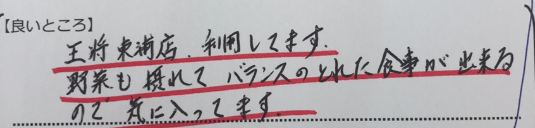 【良いところ】
王将東浦店、利用してます。
野菜も摂れてバランスのとれた食事が出来る
ので気に入ってます。